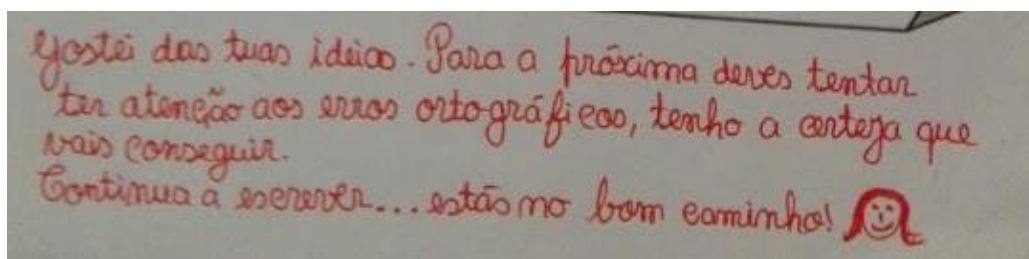 Gostei das tuas ideias. Para a próxima deves tentar
ter atenção aos erros ortográficos, tenho a certeza que
vais conseguir.
Continua a escrever... estás no bom caminho!